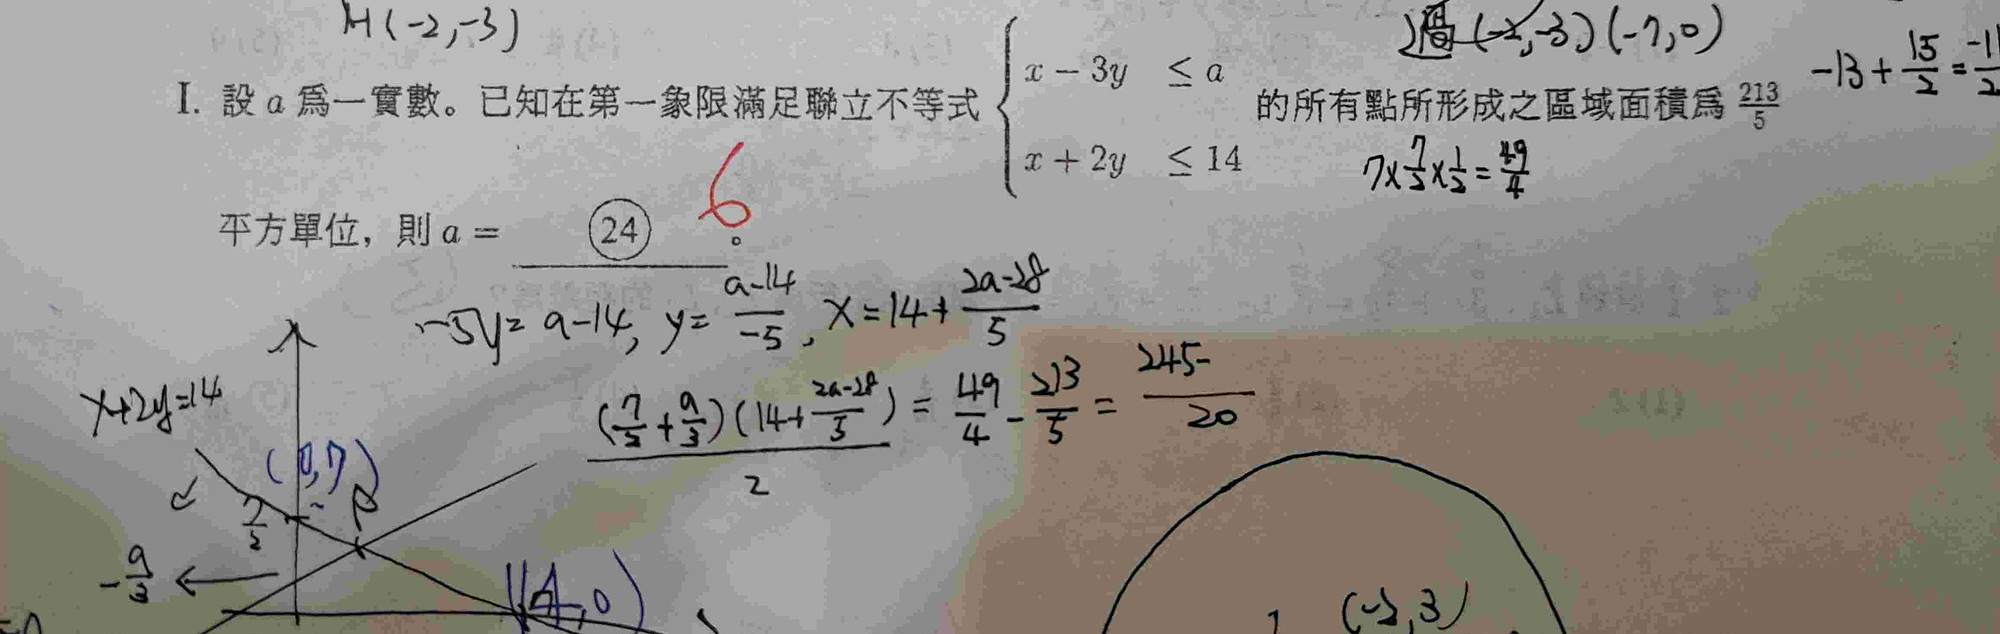 H(-2,-3)
過(-2,-3)(-7,0)
-13+15/2=-11/2
I. 設 a 爲一實數。已知在第一象限滿足聯立不等式 { x - 3y ≤ a
x + 2y ≤ 14 的所有點所形成之區域面積爲 213/5
7×7/2×1/2=49/4
平方單位，則 a = 24 。
6
-5y=a-14, y=a-14/-5, x=14+2a-28/5
(7/2+a/3)(14+2a-28/5)/2=49/4-213/5=245-/20
x+2y=14
(0,7)
7/2
-a/3
(14,0)
(-2,3)